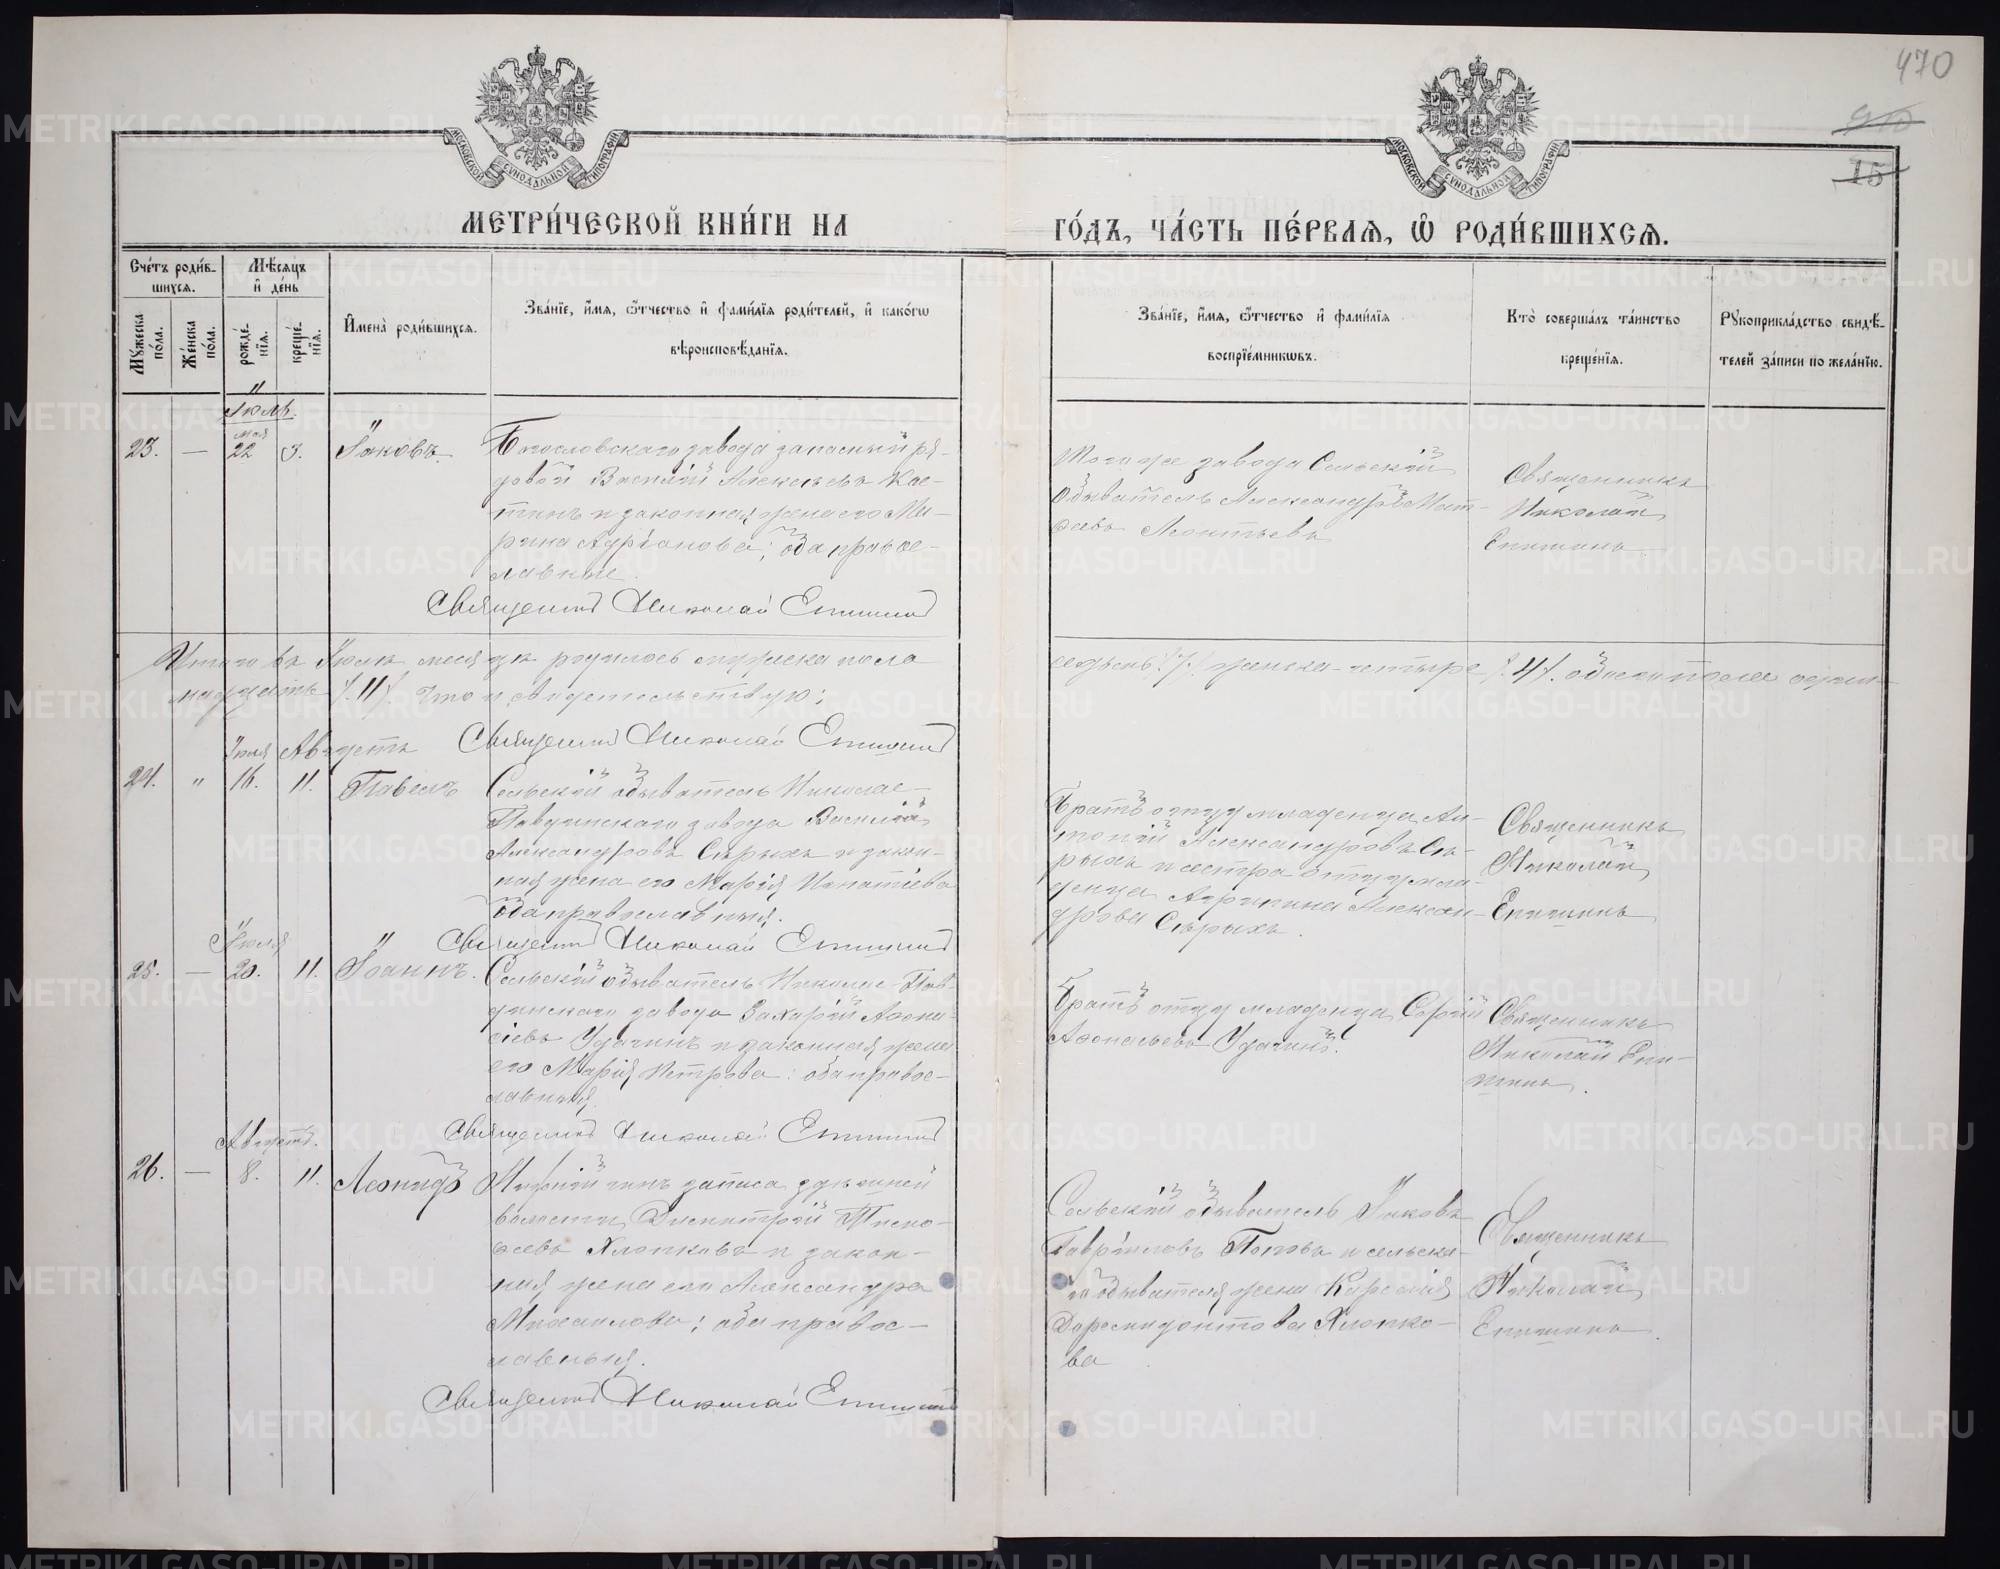 470
15
МОСКОВСКОЙ СѴНОДАЛЬНОЙ ТИПОГРАФІИ
МОСКОВСКОЙ СѴНОДАЛЬНОЙ ТИПОГРАФІИ
МЕТРИ́ЧЕСКОЙ КНИ́ГИ НА
ГО́ДЪ, ЧА́СТЬ ПЕ́РВАЯ, Ѡ҆ РОДИ́ВШИХСЯ.
Сче́тъ роди́в-
шихся.
Мѣ́сяцъ
и҆ де́нь
Мꙋ́жеска
по́ла.
Же́нска
по́ла.
рожде́-
нїя.
креще́-
нїя.
И҆мена̀ роди́вшихся.
Зва́нїе, и҆́мя, ѻ҆́тчество и҆ фами́лїя роди́телей, и҆ како́гѡ
вѣроисповѣ́данїя.
Зва́нїе, и҆́мя, ѻ҆́тчество и҆ фами́лїя
воспрїе́мникѡвъ.
Кто̀ соверша́лъ та́инство
креще́нїя.
Рꙋкоприкла́дство свидѣ́-
телей за́писи по жела́нїю.
Іюль.
мая
23. — 22 3. Іаковъ.
Богословскаго завода запасный ря-
довой Василій Алексѣевъ Кос-
тинъ и законная жена его Ма-
рина Адріанова; оба правос-
лавные.
Священникъ Николай Епишинъ
Того же завода Сельскій
обыватель Александръ Мат-
ѳеевъ Леонтьевъ
Священникъ
Николай
Епишинъ
Итого въ Іюлѣ месяцѣ родилось мужеска пола
седьмь /7/. женска - четыре /.4/. обоего пола один-
надцать /.11/. Что и свидетельствую:
Священникъ Николай Епишинъ
Іюля Августъ
24. " 16. 11. Павелъ
Сельскій обыватель Николае-
Павдинскаго завода Василій
Александровъ Сѣрыхъ и закон-
ная жена его Марія Игнатіева
оба православныя.
Священникъ Николай Епишинъ
Братъ отцу младенца Ан-
тоній Александровъ Сѣ-
рыхъ и сестра отцу мла-
денца Агрипина Алексан-
дрова Сѣрыхъ.
Священникъ
Николай
Епишинъ
Іюля
25. — 20. 11. Іоаннъ.
Сельскій обыватель Николае-Пав-
динскаго завода Захарій Аѳона-
сіевъ Удачинъ и законная жена
его Марія Петрова: оба правос-
лавныя.
Священникъ Николай Епишинъ
Братъ отцу младенца Сергій
Аѳонасьевъ Удачинъ.
Священникъ
Николай Епи-
шинъ.
Августъ.
26. — 8. 11. Леонидъ
Нижній чинъ запаса здѣшней
волости, Димитрій
Хлопковъ и закон-
ная жена его Александра
Михаилова; оба правос-
лавныя.
Священникъ Николай Епишинъ
Сельскій обыватель Іаковъ
Гавріиловъ Поповъ и сельска-
го обывателя жена
Хлопко-
ва
Священникъ
Николай
Епишинъ.
METRIKI.GASO-URAL.RU